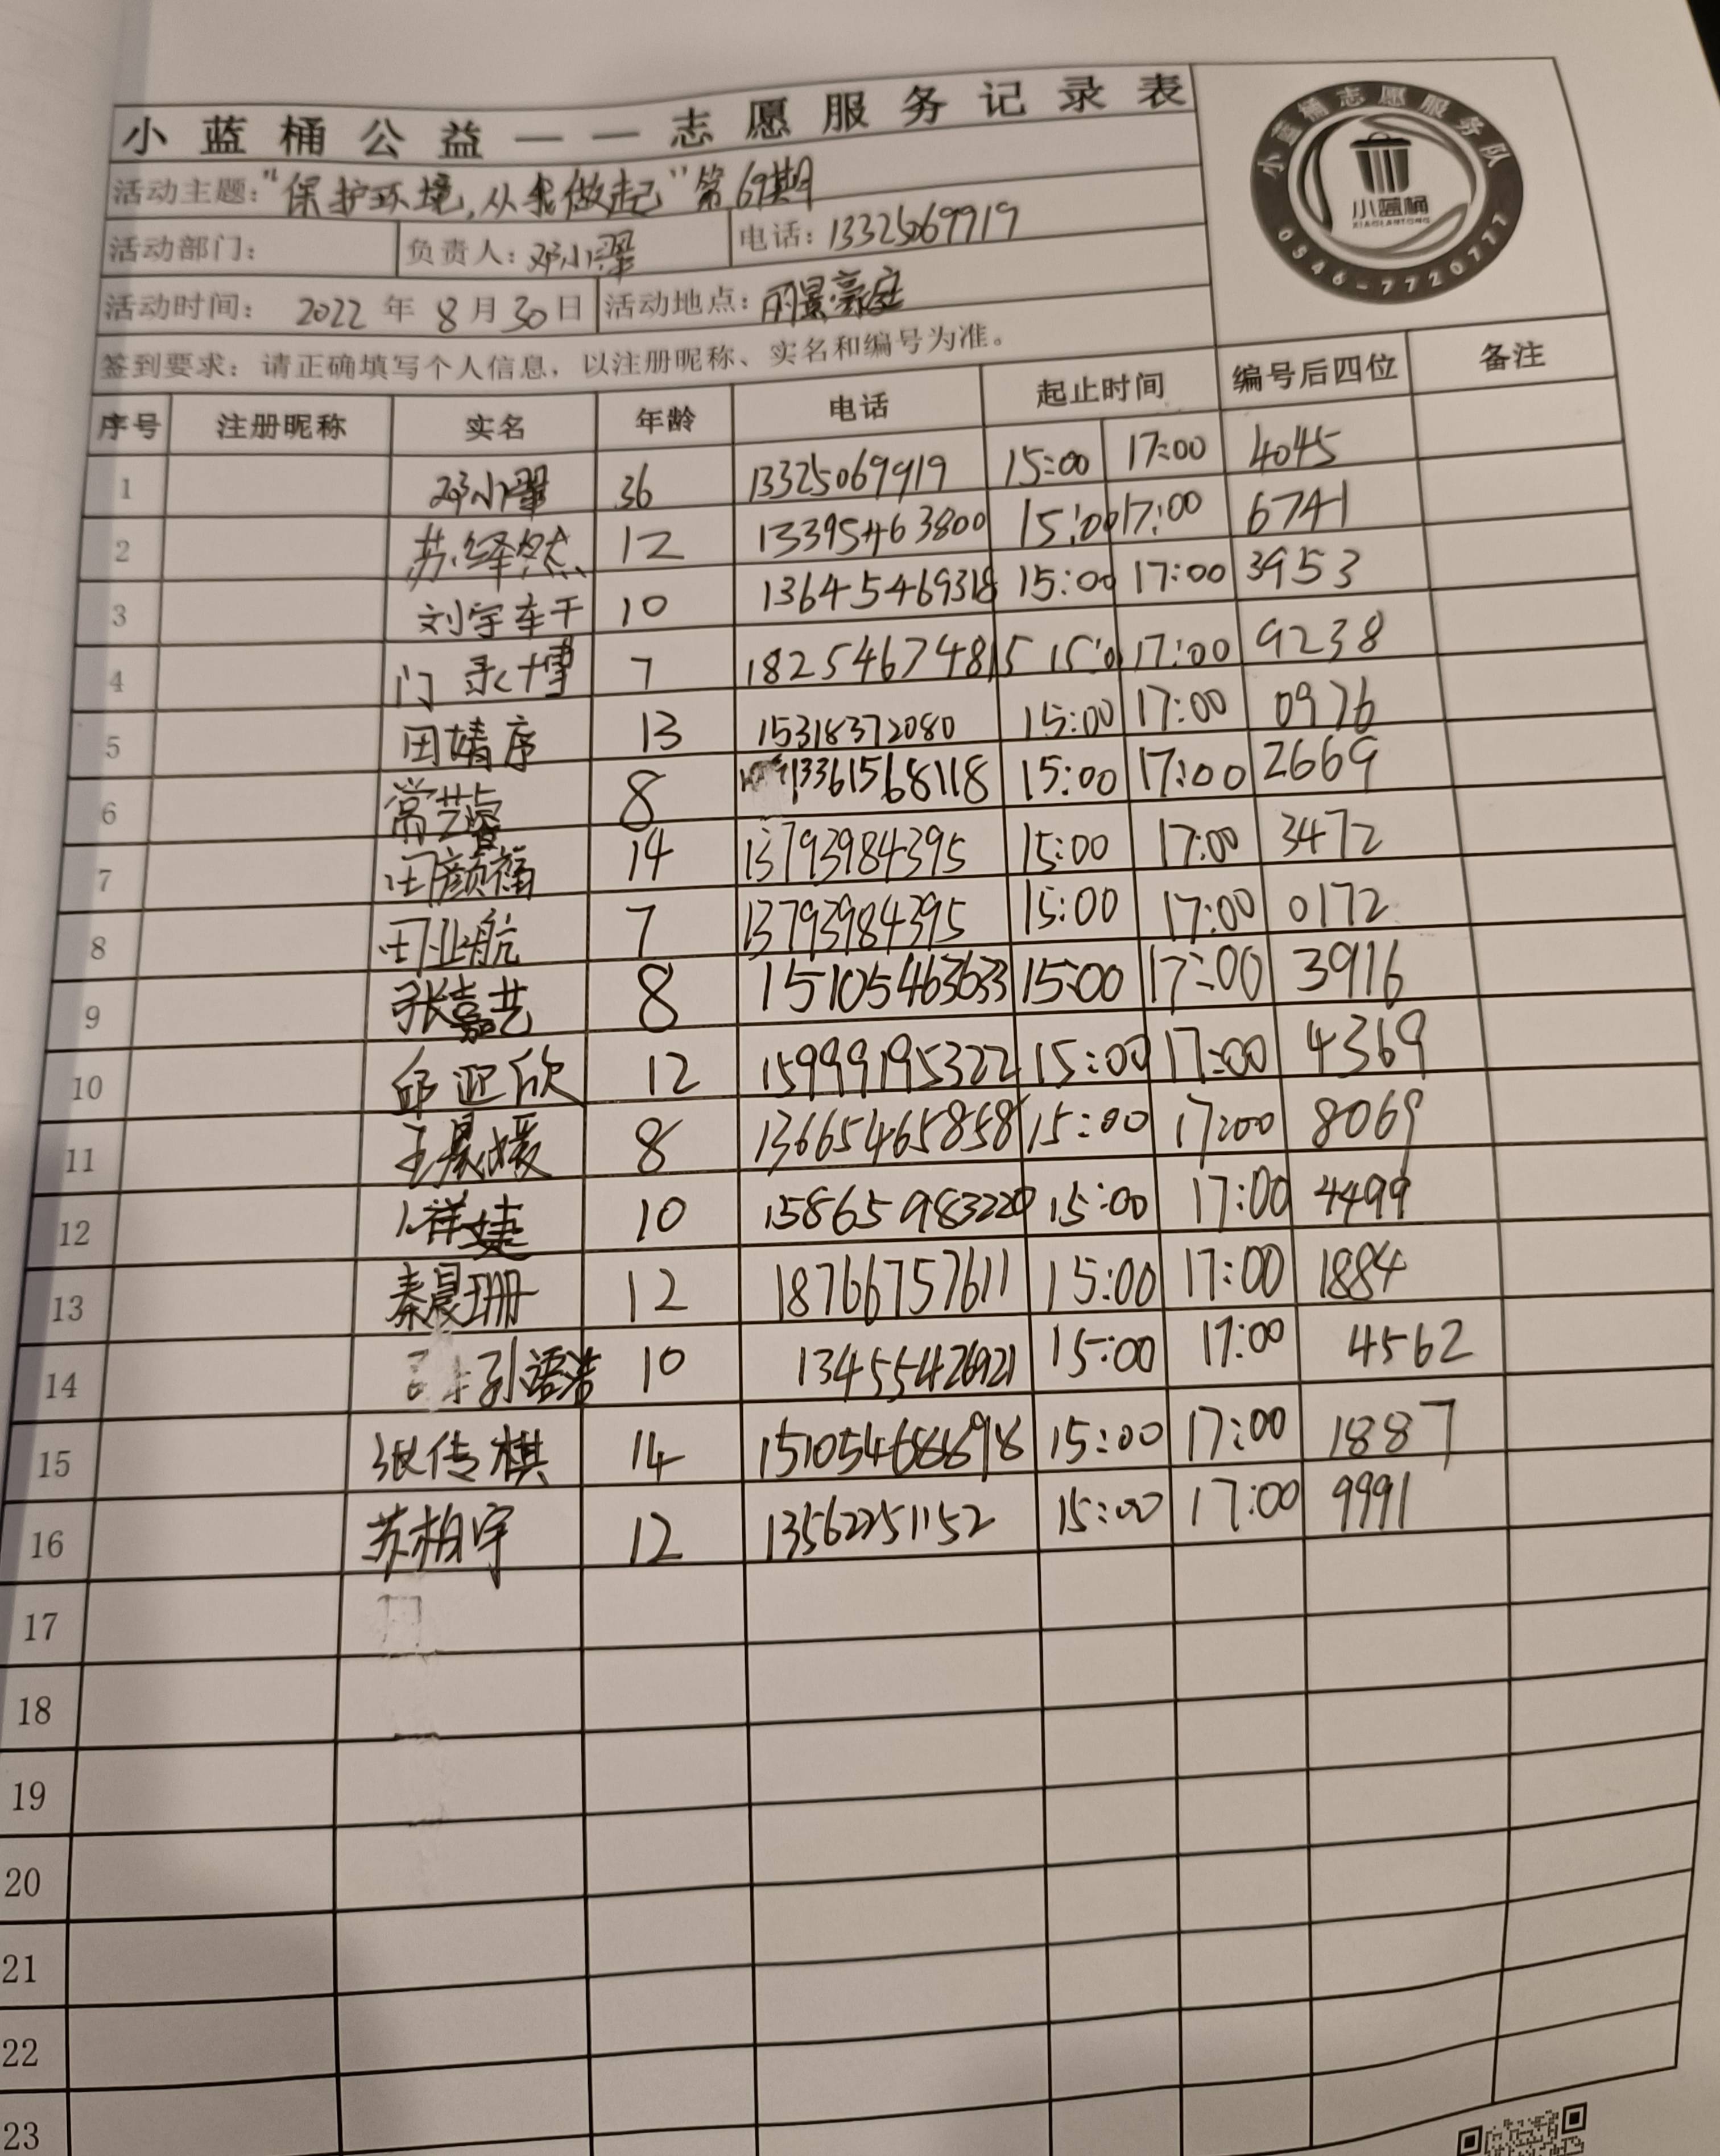 小蓝桶公益——志愿服务记录表
小蓝桶志愿服务队
小蓝桶
XIAOLANTONG
0546-7720777
活动主题："保护环境,从我做起"第69期
活动部门： 负责人：邓小翠 电话：13325069919
活动时间： 2022 年 8 月 30 日 活动地点：丽景豪庭
签到要求：请正确填写个人信息，以注册昵称、实名和编号为准。
序号 注册昵称 实名 年龄 电话 起止时间 编号后四位 备注
1 邓小翠 36 13325069919 15:00 17:00 4045
2 苏绎然 12 13395463800 15:00 17:00 6741
3 刘宇 10 13645469318 15:00 17:00 3953
4 门永博 7 18254674815 15:0 17:00 9238
5 田婧序 13 15318372080 15:00 17:00 0976
6 常艺 8 13361568118 15:00 17:00 2669
7 田颜 14 13793984395 15:00 17:00 3472
8 田业航 7 13793984395 15:00 17:00 0172
9 张嘉艺 8 15105463633 15:00 17:00 3916
10 邱亚欣 12 15999195322 15:00 17:00 4369
11 王晨媛 8 13665465858 15:00 17:00 8069
12 祥婕 10 15865983220 15:00 17:00 4499
13 秦晨珊 12 18766757611 15:00 17:00 1884
14 孙语浩 10 13455426921 15:00 17:00 4562
15 张传棋 14 15105468898 15:00 17:00 1887
16 苏柏宇 12 13562251152 15:00 17:00 9991
17
18
19
20
21
22
23